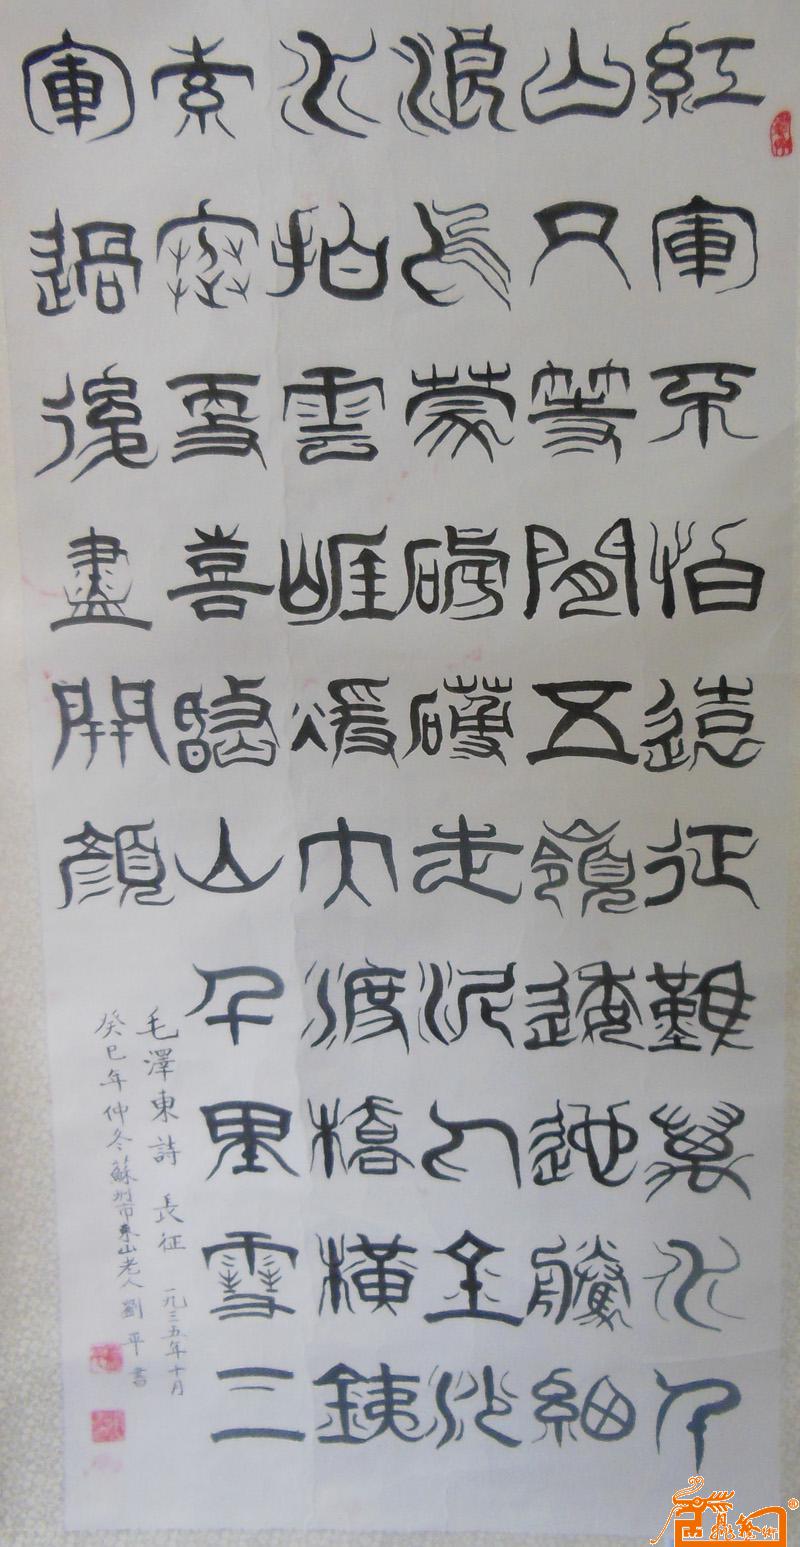 紅軍不怕遠征難萬水千
山只等閒五嶺逶迤騰細
浪烏蒙磅礴走泥丸金沙
水拍雲崖暖大渡橋橫鐵
索寒更喜岷山千里雪三
軍過後盡開顏
毛澤東詩 長征 一九三五年十月
癸巳年仲冬蘇州市東山老人劉平書